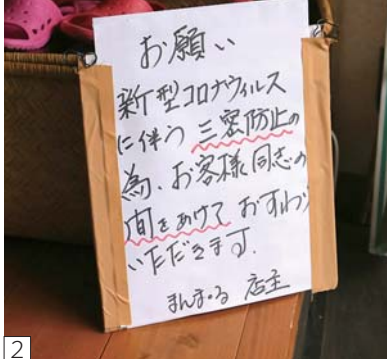 お願い
新型コロナウィルス
に伴う 三密防止の
為、お客様同志の
間をあけて おすわり
いただきます.
まんまる 店主
2